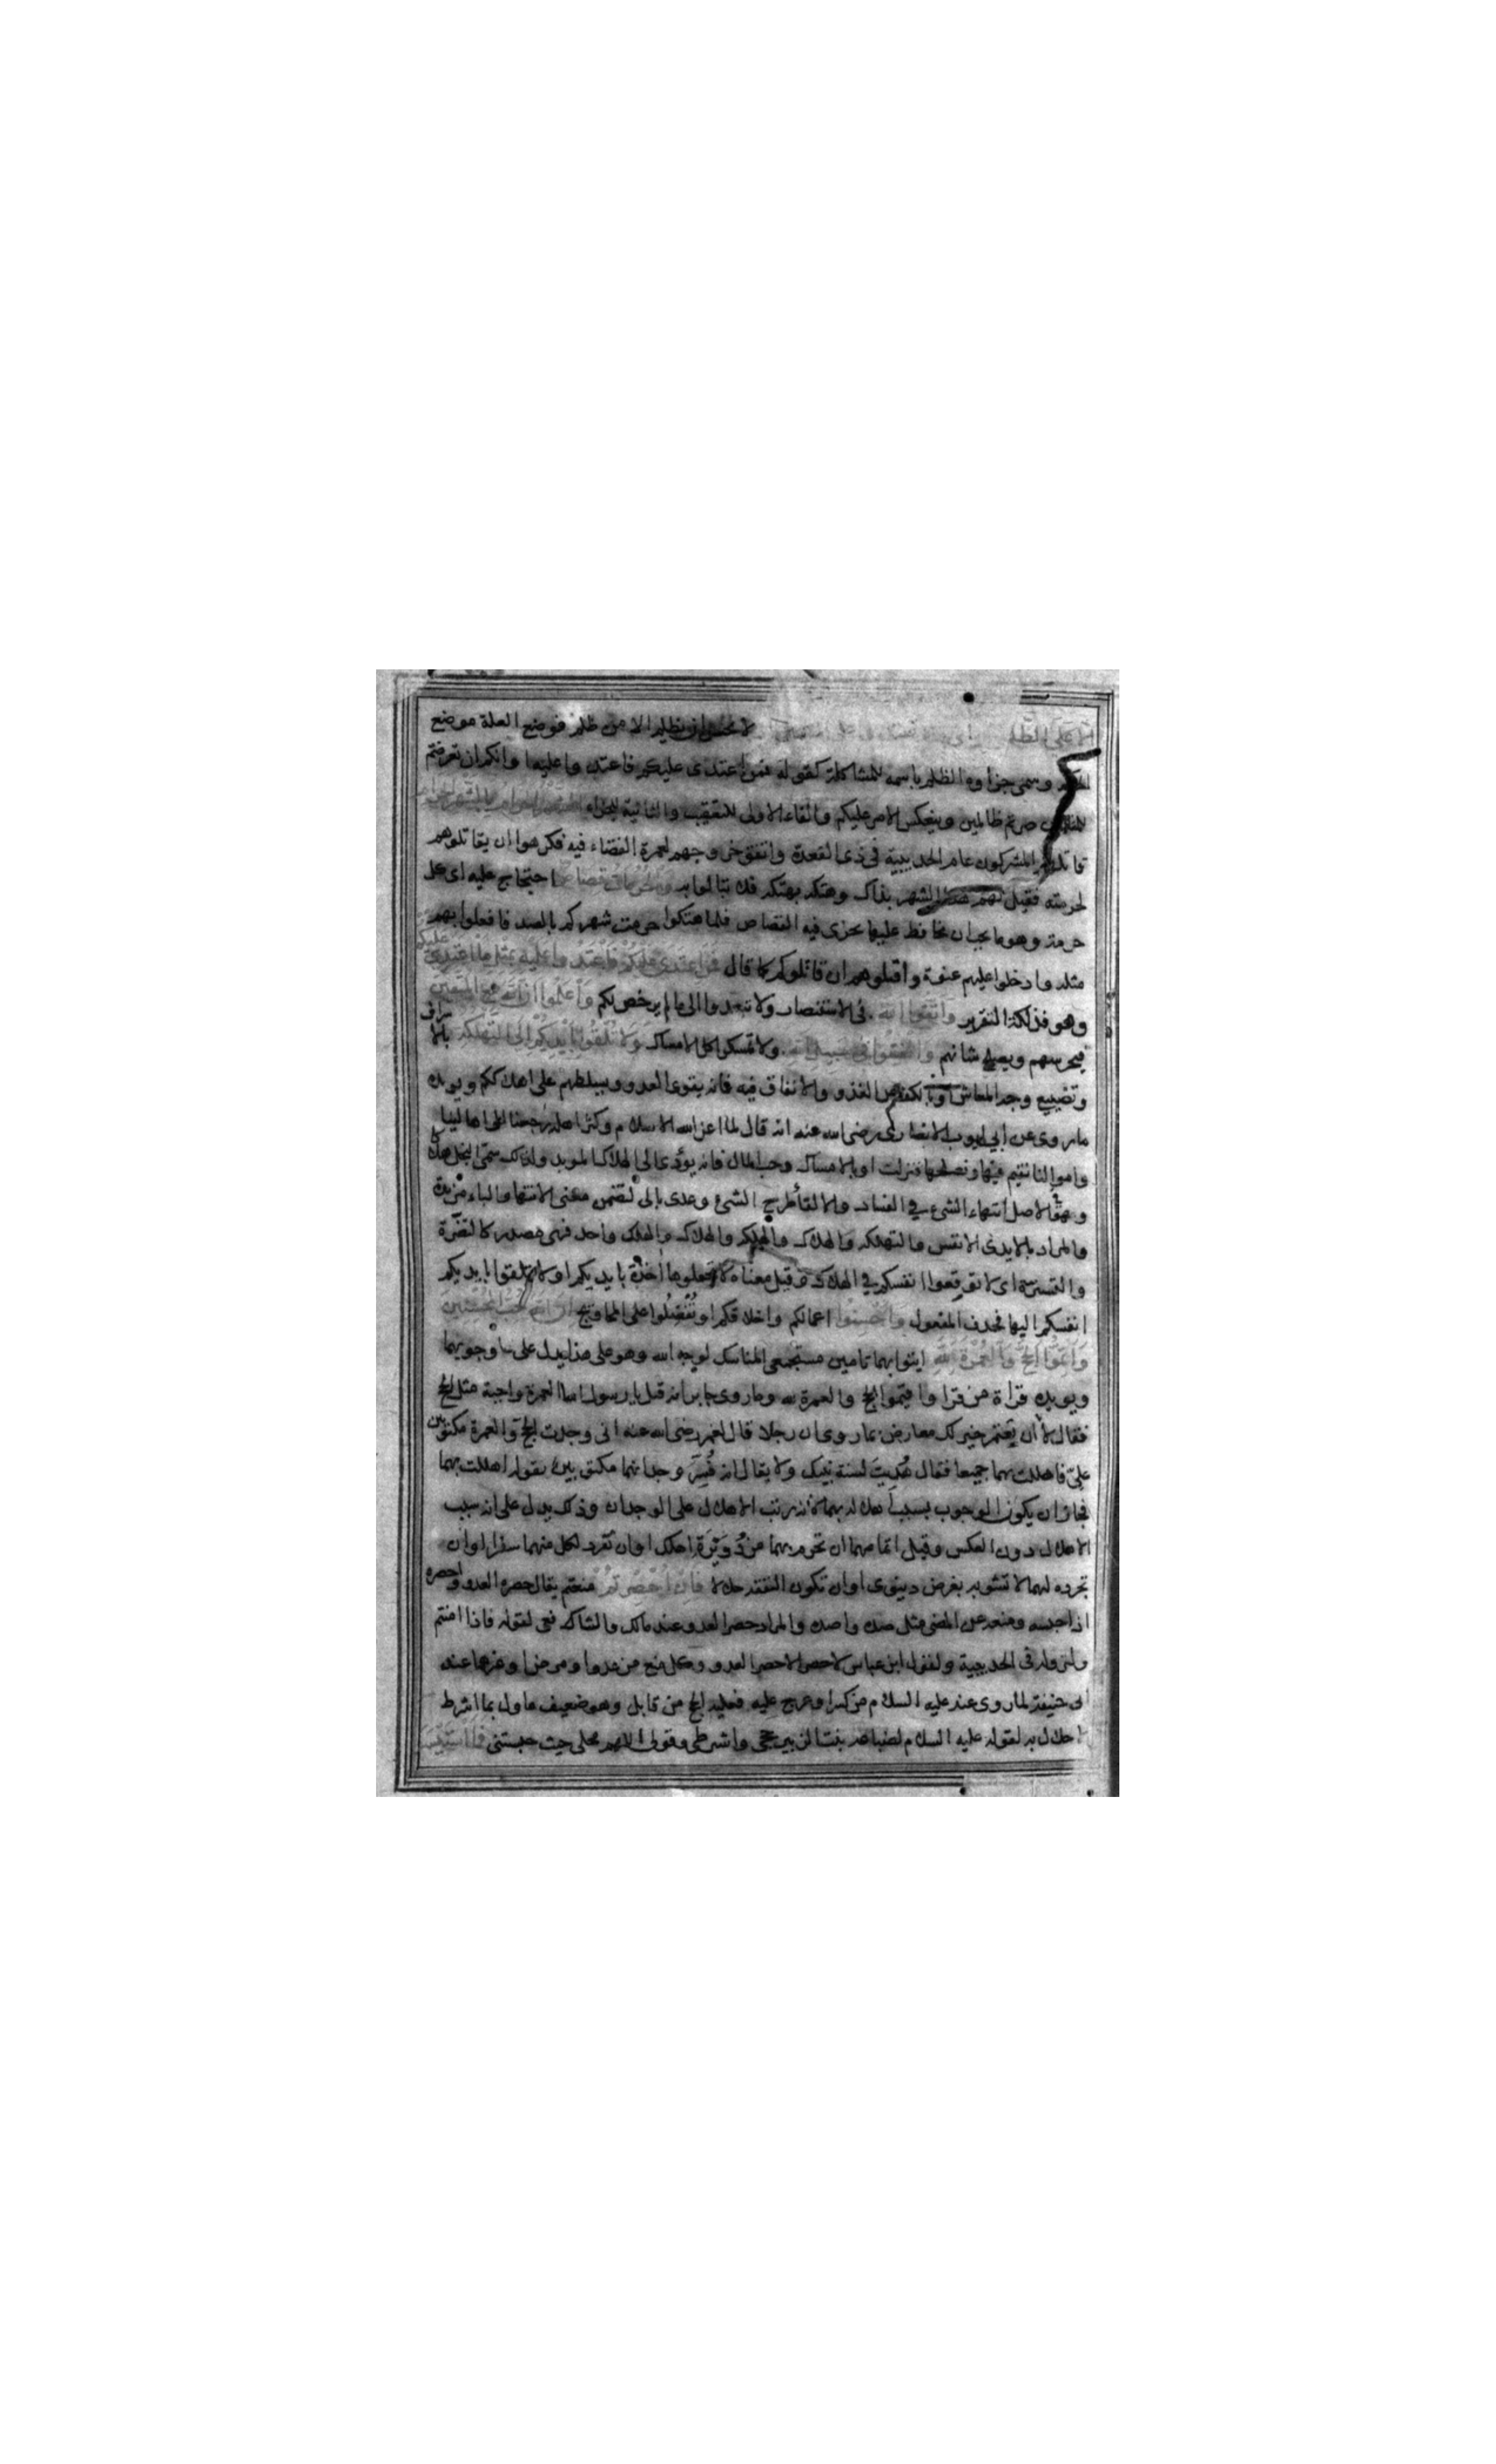 الا على الظا لا يحسن ان يظلم الا من ظلم فوضع العلة موضع
الحكم وسمى جزاوه الظلم باسمه للمشاكلة كقوله فمن اعتدى عليكم فاعتدوا عليه او انكم ان تعرضتم
للمنتهين صرتم ظالمين وينعكس الامر عليكم والفاء الاولى للتعقيب والثانية للجزاء الشهر الحرام بالشهر الحرام
قاتلهم المشركون عام الحديبية في ذى القعدة واتفق خروجهم لعمرة القضاء فيه فكرهوا ان يقاتلوهم
لحرمته فقيل لهم هذا الشهر بذاك وهتكه بهتكه فلا تبالوا به والحرمات قصاص احتجاج عليه اى كل
حرمة وهو ما يجب ان يحافظ عليها يجزى فيه القصاص فلما هتكوا حرمت شهركم بالصد فافعلوا بهم
مثله وادخلوا عليهم عنوة واقتلوهم ان قاتلوكم كما قال فمن اعتدى عليكم فاعتدوا عليه بمثل ما اعتدى عليكم
وهو فذلكة التقرير واتقوا الله في الاستنصار ولا تعتدوا الى ما لم يرخص لكم واعلموا ان الله مع المتقين
فيحرسهم ويصلح شانهم وانفقوا في سبيل الله ولا تمسكوا كل الامساك ولا تلقوا بايديكم الى التهلكة بالاسراف
وتضييع وجه المعاش او بالكف عن الغزو والانفاق فيه فانه يقوى العدو ويسلطهم على اهلاككم ويويده
ما روى عن ابي ايوب الانصارى رضى الله عنه انه قال لما اعز الله الاسلام وكثر اهله رجعنا الى اهالينا
واموالنا نقيم فيها ونصلحها فنزلت او بالامساك وحب المال فانه يؤدى الى الهلاك الموبد ولذلك سمى البخل هلاكا
وهو في الاصل انتهاء الشئ في الفساد والالقا طرح الشئ وعدى بالى لتضمن معنى الانتها والباء مزيدة
والمراد بالايدى الانفس والتهلكه والهلاك والهلك واحد فهى مصدر كالتضرة
والتسرة اى لا توقعوا انفسكم في الهلاك وقيل معناه لا تجعلوها اخذة بايديكم او لا تلقوا بايديكم
انفسكم اليها فحذف المفعول واحسنوا اعمالكم واخلاقكم او تفضلوا على المحاويج ان الله يحب المحسنين
واتموا الحج والعمرة لله ايتوا بهما تامين مستجمعى المناسك لوجه الله وهو على هذا يدل على وجوبهما
ويويده قراة من قرا واقيموا الحج والعمرة لله وما روى جابر انه قيل يا رسول الله العمرة واجبة مثل الحج
فقال لا ان تعتمر خير لك معارض بما روى ان رجلا قال لعمر رضى الله عنه انى وجدت الحج والعمرة مكتوبين
على فاهللت بهما جميعا فقال هديت لسنة نبيك ولا يقال انه فسر وجدانهما مكتوبين بقوله اهللت بهما
فجاز ان يكون الوجوب بسبب اهلاله بهما لانه رتب الاهلال على الوجدان وذلك يدل على انه سبب
الاهلال دون العكس وقيل اتمامهما ان تحرم بهما من دويرة اهلك او ان تفرد لكل منهما سفرا او ان
تجرده لهما لا تشوبه بغرض دينوى او ان تكون النفقة حلالا فان احصرتم منعتم يقال حصره العدو واحصره
اذا حبسه ومنعه عن المضى مثل صده واصده والمراد حصر العدو عند مالك والشافعى لقوله فاذا امنتم
ولنزوله في الحديبية ولقول ابن عباس لا حصر الا حصر العدو وكل منع من عدو او مرض او غيرهما عند
ابى حنيفة لما روى عنه عليه السلام من كسر او عرج عليه فعليه الحج من قابل وهو ضعيف ماول بما اشرط
الاحلال به لقوله عليه السلام لضباعه بنت الزبير حجى واشرطى وقولى اللهم محلى حيث حبستنى فما استيسر